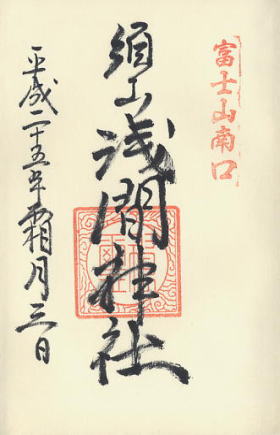 富士山南口
須山浅間神社
平成二十五年霜月三日